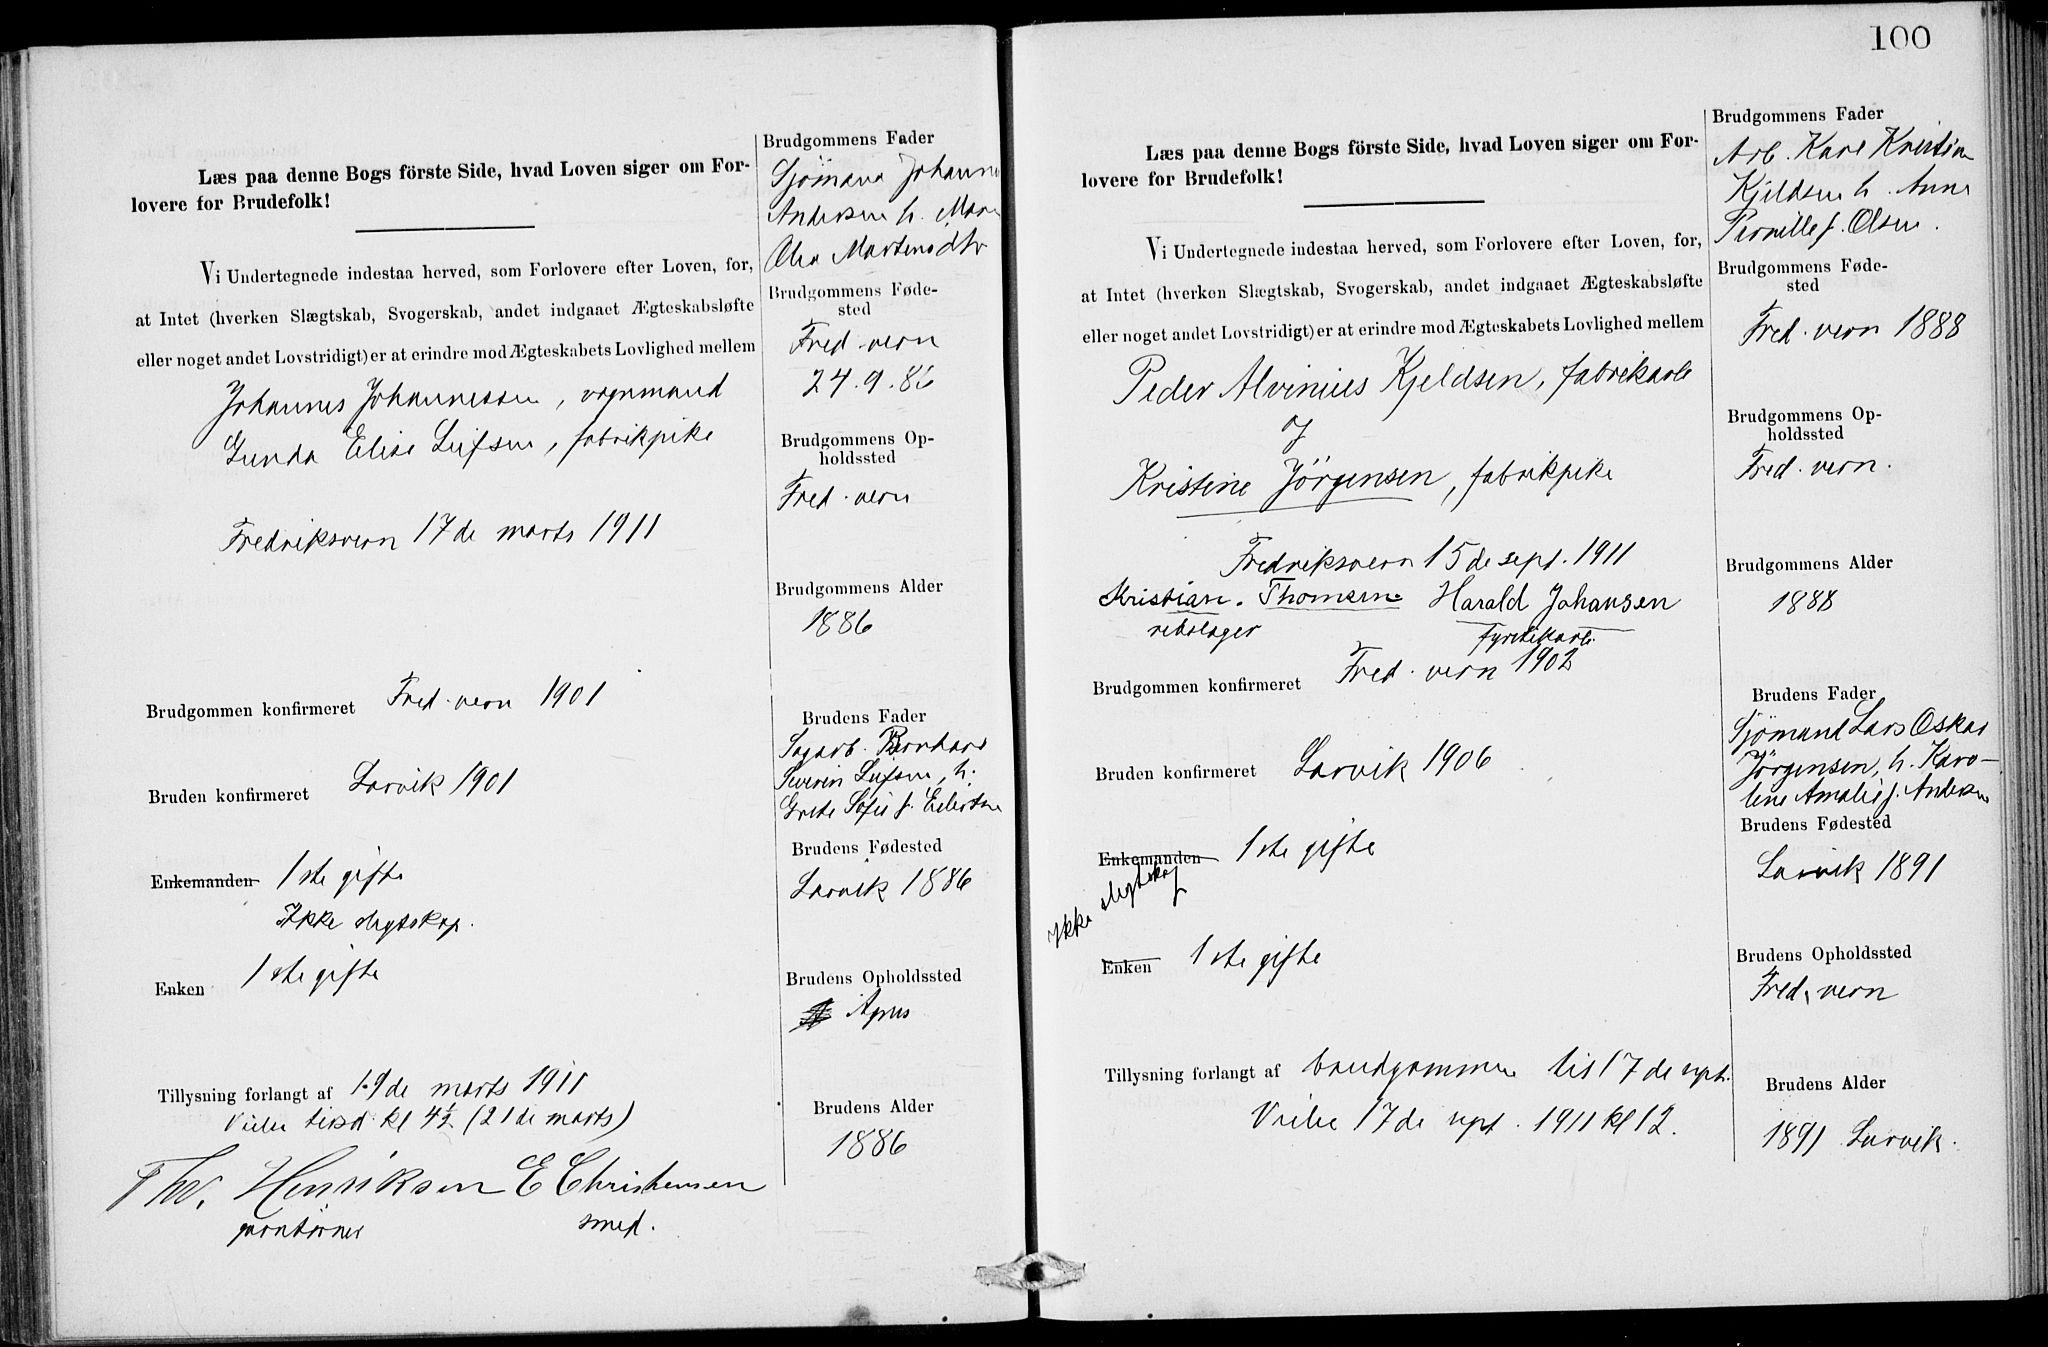 Læs paa denne Bogs förste Side, hvad Loven siger om For-
lovere for Brudefolk!
Vi Undertegnede indestaa herved, som Forlovere efter Loven, for,
at Intet (hverken Slægtskab, Svogerskab, andet indgaaet Ægteskabsløfte
eller noget andet Lovstridigt) er at erindre mod Ægteskabets Lovlighed mellem
Johannes Johannessen, vognmand
Gunda Elise Leifsen, fabrikpike
Fredriksvern 17de marts 1911
Brudgommen konfirmeret Fred.vern 1901
Bruden konfirmeret Larvik 1901
Enkemanden 1ste gifte
Ikke slegtskap.
Enken 1ste gifte
Tillysning forlangt af 19de marts 1911
Vielse tirsd. kl 4½ (21de marts)
Thv. Henriksen E Christensen
smed.
Brudgommens Fader
Sjömand Johannes
Andersen h. Maren
Olea Martensdtr
Brudgommens Føde-
sted
Fred.vern
24.9.86
Brudgommens Op-
holdssted
Fred.vern
Brudgommens Alder
1886
Brudens Fader
Sagarb. Bernhard
Severin Leifsen, h.
Grete Sofie f. Eilertsen
Brudens Fødested
Larvik 1886
Brudens Opholdssted
Agnes
Brudens Alder
1886
100
Læs paa denne Bogs förste Side, hvad Loven siger om For-
lovere for Brudefolk!
Vi Undertegnede indestaa herved, som Forlovere efter Loven, for,
at Intet (hverken Slægtskab, Svogerskab, andet indgaaet Ægteskabsløfte
eller noget andet Lovstridigt) er at erindre mod Ægteskabets Lovlighed mellem
Peder Alvinius Kjeldsen, fabrikarb
og
Kristine Jörgensen, fabrikpike
Fredriksvern 15de sept. 1911
Kristian. Thomsen. Harald Johansen
rebslager
Brudgommen konfirmeret Fred.vern 1902
Bruden konfirmeret Larvik 1906
Enkemanden 1ste gifte
Ikke slegtskap
Enken 1ste gifte
Tillysning forlangt af brudgommen til 17de sept.
Vielse 17de sept. 1911 kl 12.
Brudgommens Fader
Arb. Karl Kristian
Kjeldsen h. Anne
Pernille f. Olsen.
Brudgommens Føde-
sted
Fred.vern 1888
Brudgommens Op-
holdssted
Fred.vern.
Brudgommens Alder
1888
Brudens Fader
Sjömand Lars Oskar
Jörgensen, h. Karo-
line Amalie f. Andersen
Brudens Fødested
Larvik 1891
Brudens Opholdssted
Fred.vern
Brudens Alder
1891 Larvik.